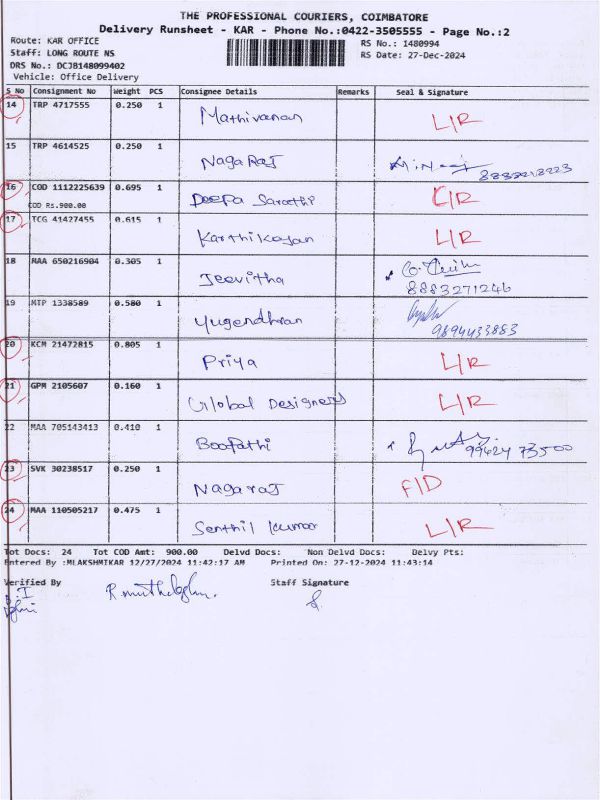 THE PROFESSIONAL COURIERS, COIMBATORE
Delivery Runsheet - KAR - Phone No.:0422-3505555 - Page No.:2
Route: KAR OFFICE
RS No.: 1480994
Staff: LONG ROUTE NS
RS Date: 27-Dec-2024
DRS No.: DCJB148099402
Vehicle: Office Delivery
S No Consignment No Weight PCS Consignee Details Remarks Seal & Signature
14 TRP 4717555 0.250 1 Mathivanan L/R
15 TRP 4614525 0.250 1 Nagaraj
16 COD 1112225639 0.695 1 Deepa Sarathi L/R
COD Rs.900.00
17 TCG 41427455 0.615 1 Karthikeyan L/R
18 MAA 650216904 0.305 1 Jeevitha
8883271246
19 MTP 1338589 0.580 1 Yugendhran
9894433883
20 KCM 21472815 0.805 1 Priya L/R
21 GPM 2105607 0.160 1 Global Designers L/R
22 MAA 705143413 0.410 1 Boopathi 99424 73500
23 SVK 30238517 0.250 1 Nagaraj F/D
24 MAA 110505217 0.475 1 Senthil Kumar L/R
Tot Docs: 24 Tot COD Amt: 900.00 Delvd Docs: Non Delvd Docs: Delvy Pts:
Entered By :MLAKSHMIKAR 12/27/2024 11:42:17 AM Printed On: 27-12-2024 11:43:14
Verified By Staff Signature